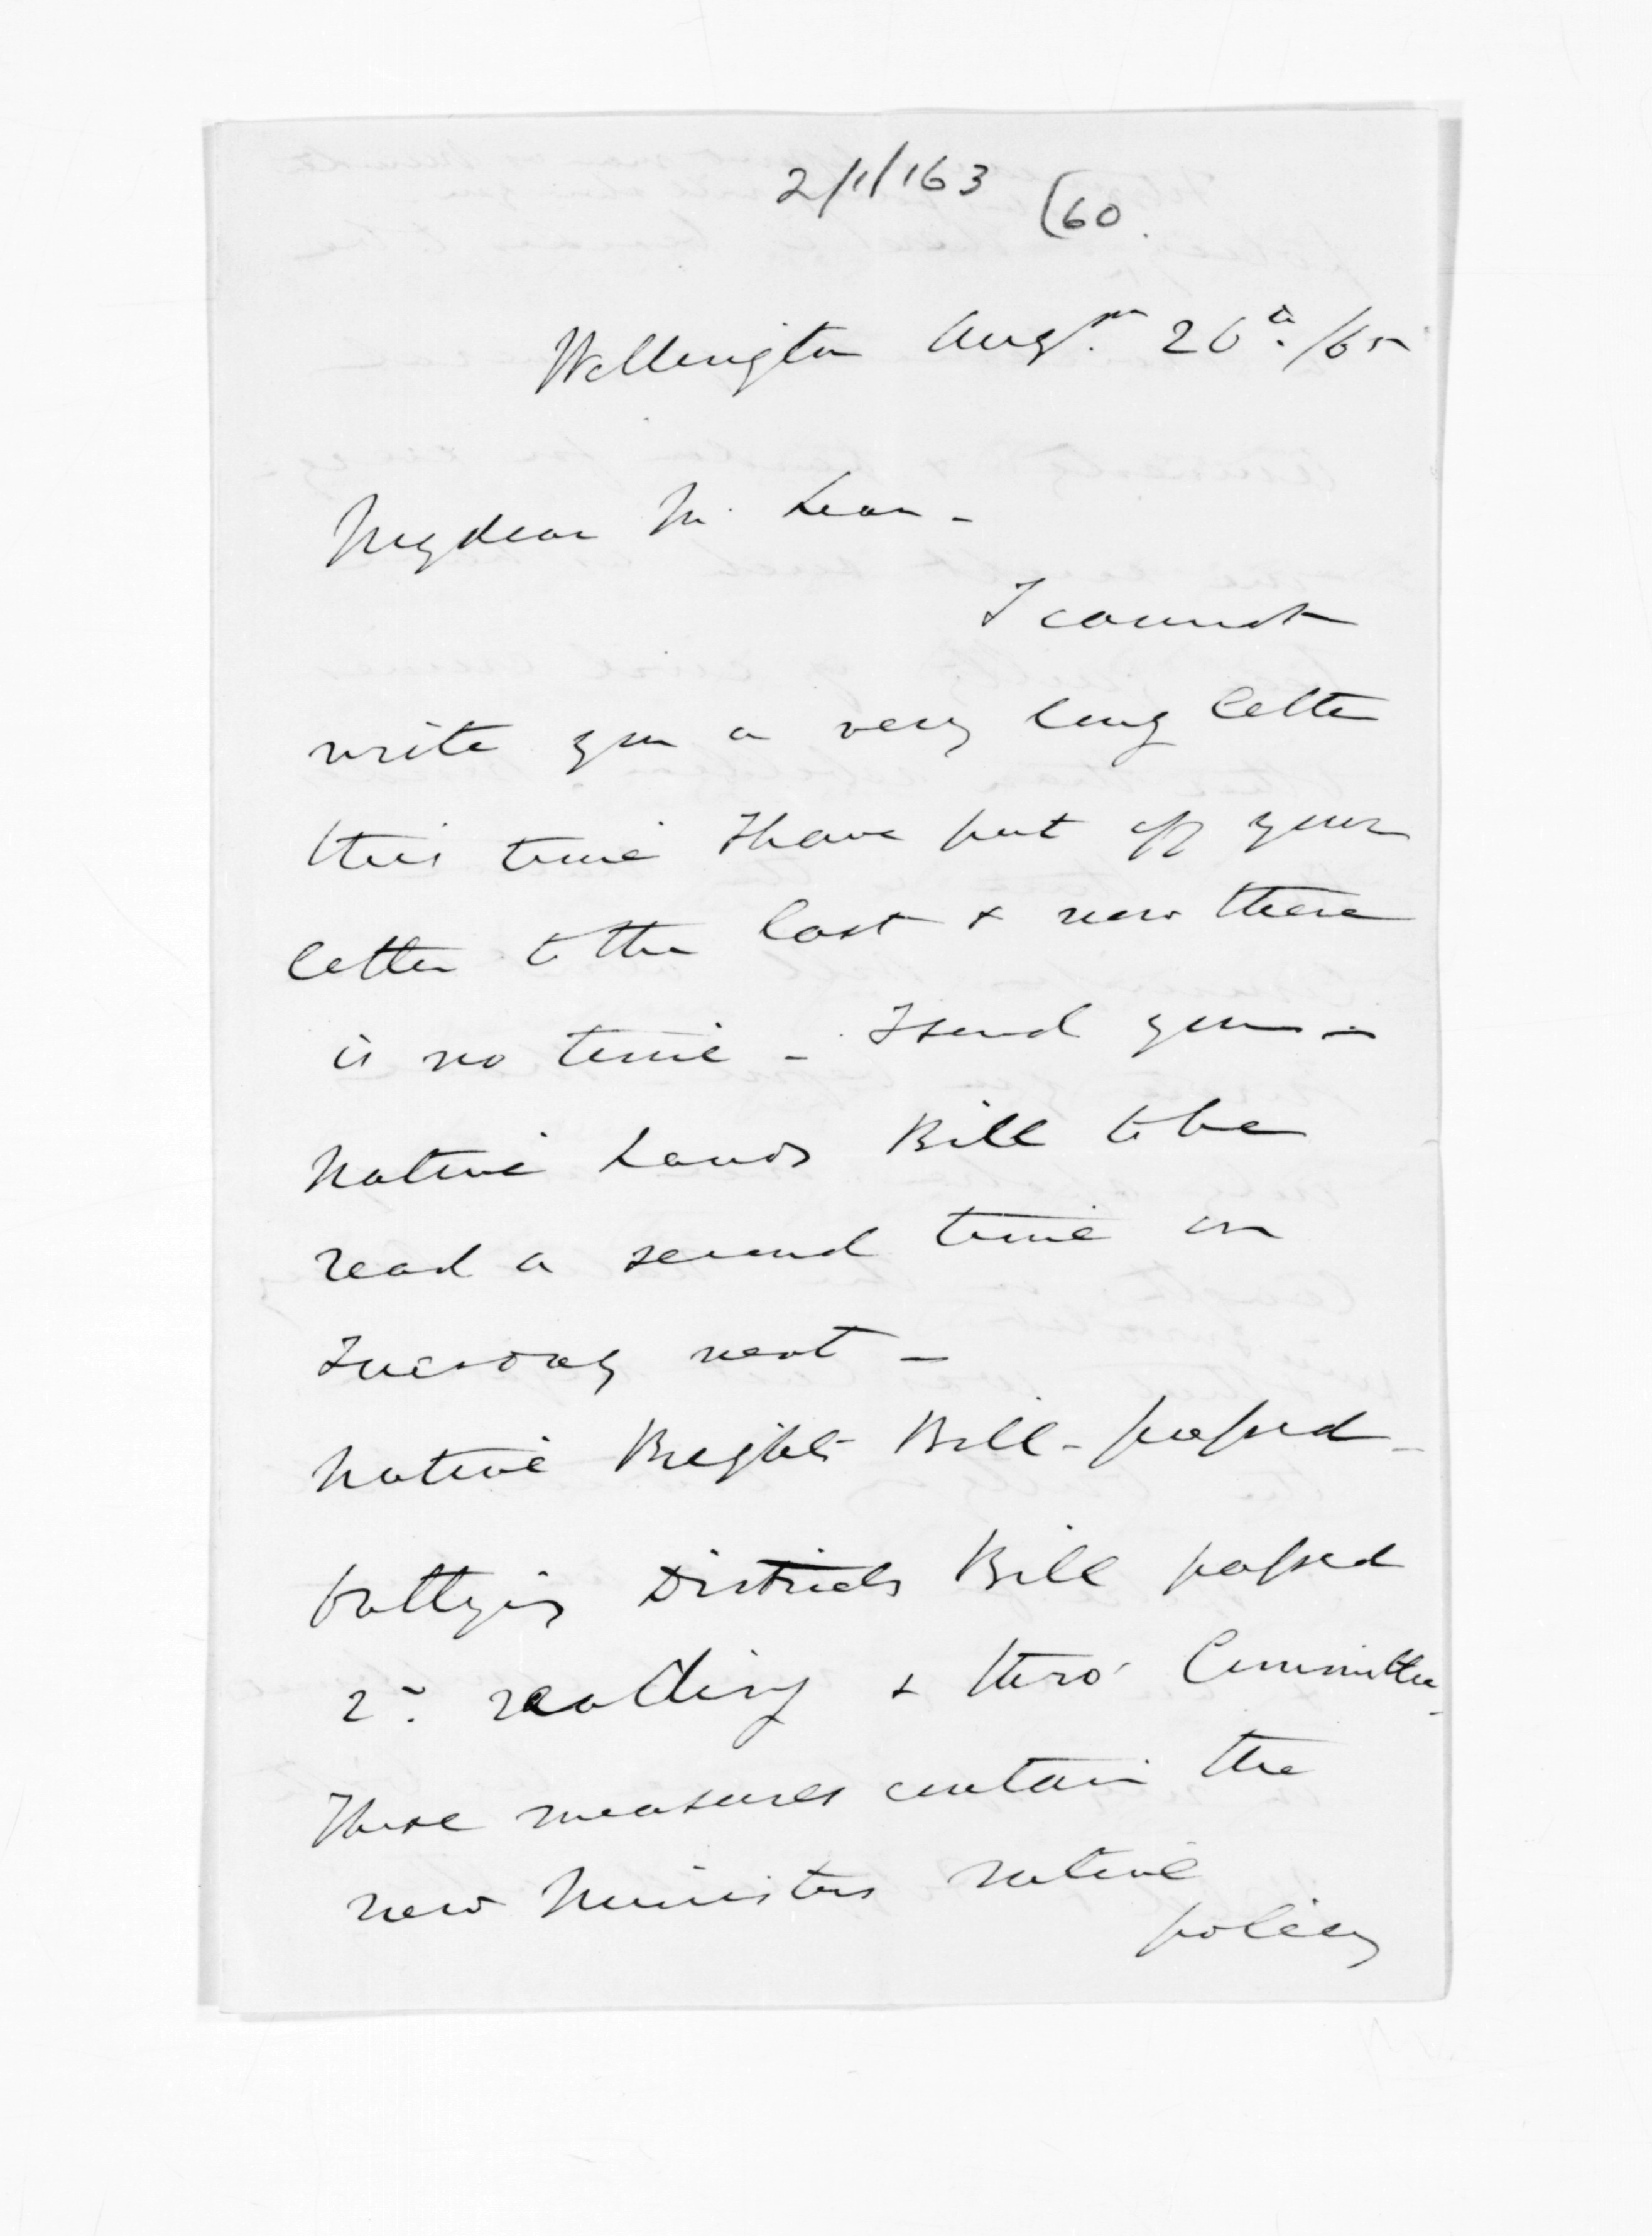 2/1/163 (60.
Wellington Augst. 26th./65
My dear Mc. Lean -
I cannot
write you a very long letter
this time I have put off your
letter to the last & now there
is no time - I send you -
Native Lands Bill to be
read a second time on
Tuesday next -
Native Rights Bill - passed -
Outlying Districts Bill passed
2d. reading & thro' Committee -
These measures contain the
new Ministers native
policy